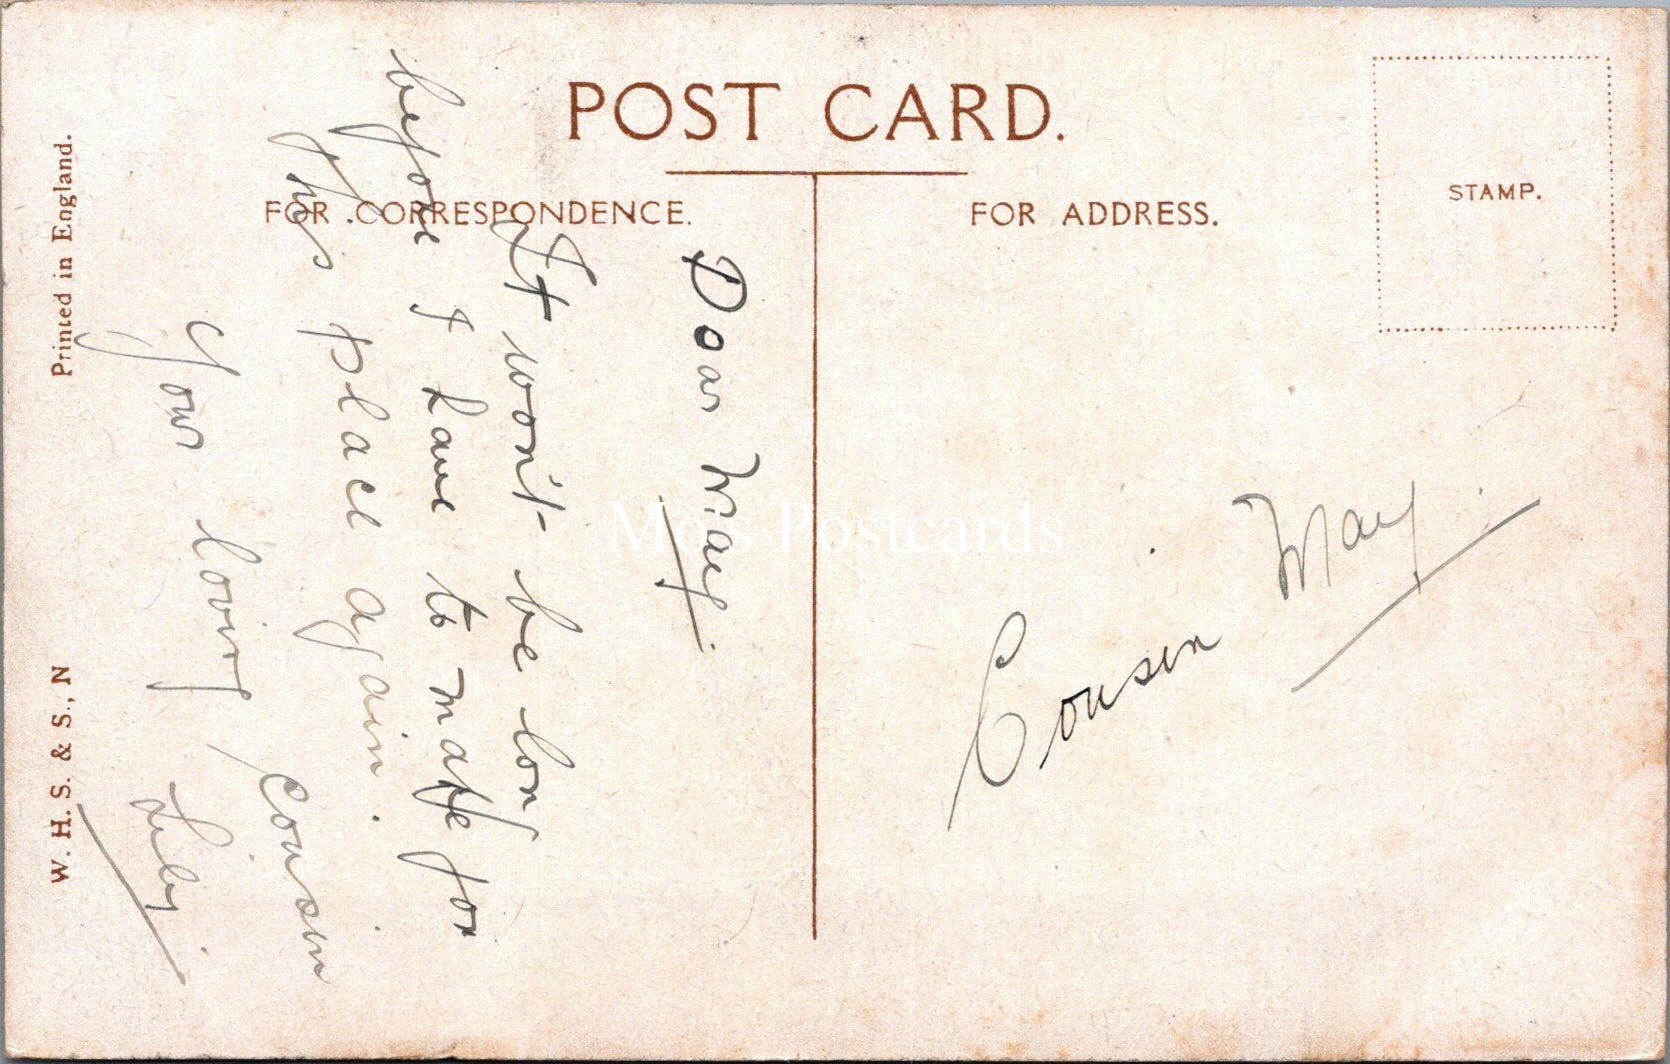 POST CARD.
FOR CORRESPONDENCE.
FOR ADDRESS.
STAMP.
Dear May.
It won't be long
before I have to make for
this place again.
Your loving Cousin
Cousin May.
Printed in England.
W. H. S. & S., N
Mo's Postcards